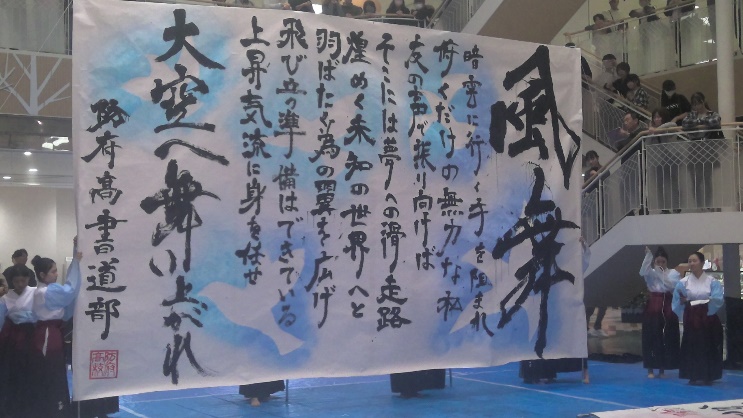 風舞
暗雲に行く手を阻まれ
俯くだけの無力な私
友の声が振り向けば
そこには夢への滑走路
煌めく未知の世界へと
羽ばたく為の翼を広げ
飛び立つ準備はできている
上昇気流に身を任せ
大空へ舞い上がれ
防府高書道部